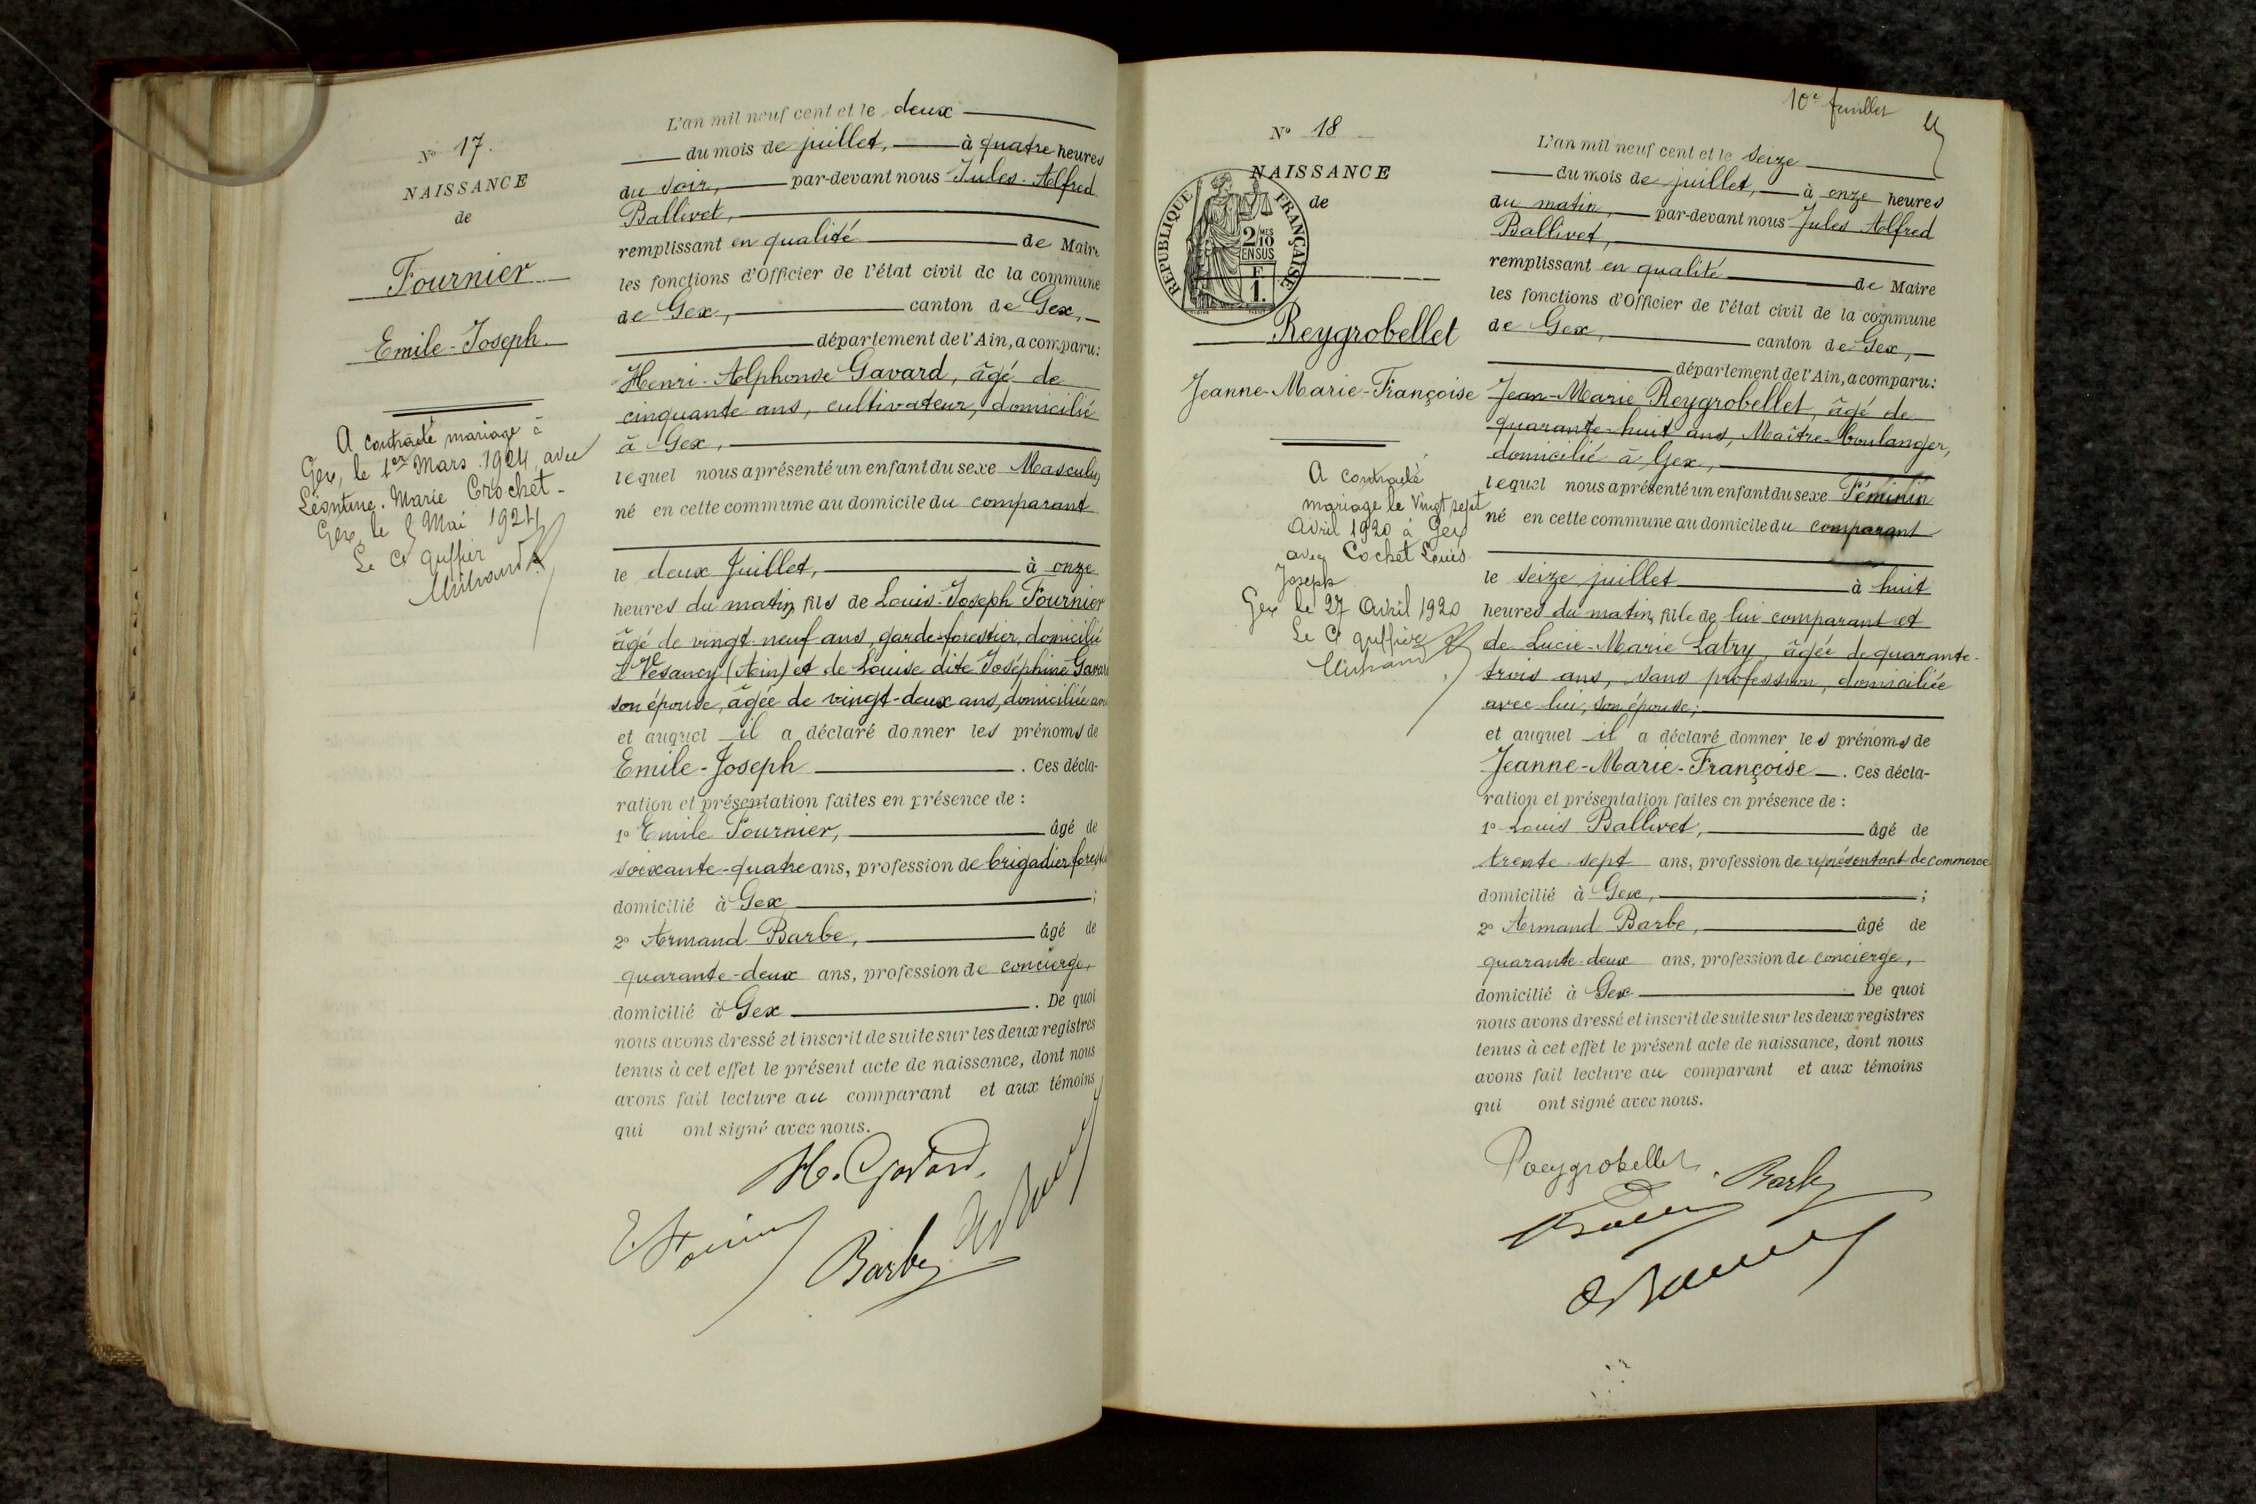 N° 17.
NAISSANCE
de
Fournier
Emile-Joseph
A contracté mariage à
Gex, le 1er Mars 1924, avec
Léontine. Marie Crochet-
Gex, le 5 Mai 1924
Le Cs Greffier
L'an mil neuf cent et le deux
du mois de juillet, à quatre heures
du soir, par-devant nous Jules-Alfred
Ballivet,
remplissant en qualité de Maire
les fonctions d'Officier de l'état civil de la commune
de Gex, canton de Gex,
département de l'Ain, a comparu:
Henri-Alphonse Gavard, âgé de
cinquante ans, cultivateur, domicilié
à Gex,
lequel nous a présenté un enfant du sexe Masculin
né en cette commune au domicile du comparant
le deux Juillet, à onze
heures du matin, fils de Louis-Joseph Fournier
âgé de vingt-neuf ans, garde-forestier, domicilié
à Vesancy (Ain) et de Louise dite Joséphine Gavard
son épouse, âgée de vingt-deux ans, domiciliée avec
et auquel il a déclaré donner les prénoms de
Emile-Joseph. Ces décla-
ration et présentation faites en présence de :
1° Emile Fournier, âgé de
soixante-quatre ans, profession de brigadier forestier
domicilié à Gex ;
2° Armand Barbe, âgé de
quarante-deux ans, profession de concierge,
domicilié à Gex. De quoi
nous avons dressé et inscrit de suite sur les deux registres
tenus à cet effet le présent acte de naissance, dont nous
avons fait lecture au comparant et aux témoins
qui ont signé avec nous.
H. Gavard.
Barbe
10e feuillet
N° 18
NAISSANCE
de
REPUBLIQUE FRANÇAISE
2/10 MES
EN SUS
F.
1.
Reygrobellet
Jeanne-Marie-Françoise
A contracté
mariage le Vingt sept
Avril 1920 à Gex
avec Cochet Louis
Joseph
Gex le 27 Avril 1920
Le Cs greffier
L'an mil neuf cent et le seize
du mois de juillet, à onze heures
du matin, par-devant nous Jules Alfred
Ballivet,
remplissant en qualité de Maire
les fonctions d'Officier de l'état civil de la commune
de Gex, canton de Gex,
département de l'Ain, a comparu:
Jean-Marie Reygrobellet, âgé de
quarante-huit ans, Maître-boulanger,
domicilié à Gex,
lequel nous a présenté un enfant du sexe Féminin
né en cette commune au domicile du comparant
le seize juillet à huit
heures du matin, fille de lui comparant et
de Lucie-Marie Latry, âgée de quarante-
trois ans, sans profession, domiciliée
avec lui, son épouse;
et auquel il a déclaré donner les prénoms de
Jeanne-Marie-Françoise. Ces décla-
ration et présentation faites en présence de :
1° Louis Ballivet, âgé de
trente-sept ans, profession de représentant de commerce
domicilié à Gex, ;
2° Armand Barbe, âgé de
quarante-deux ans, profession de concierge,
domicilié à Gex. De quoi
nous avons dressé et inscrit de suite sur les deux registres
tenus à cet effet le présent acte de naissance, dont nous
avons fait lecture au comparant et aux témoins
qui ont signé avec nous.
Reygrobellet. Barbe